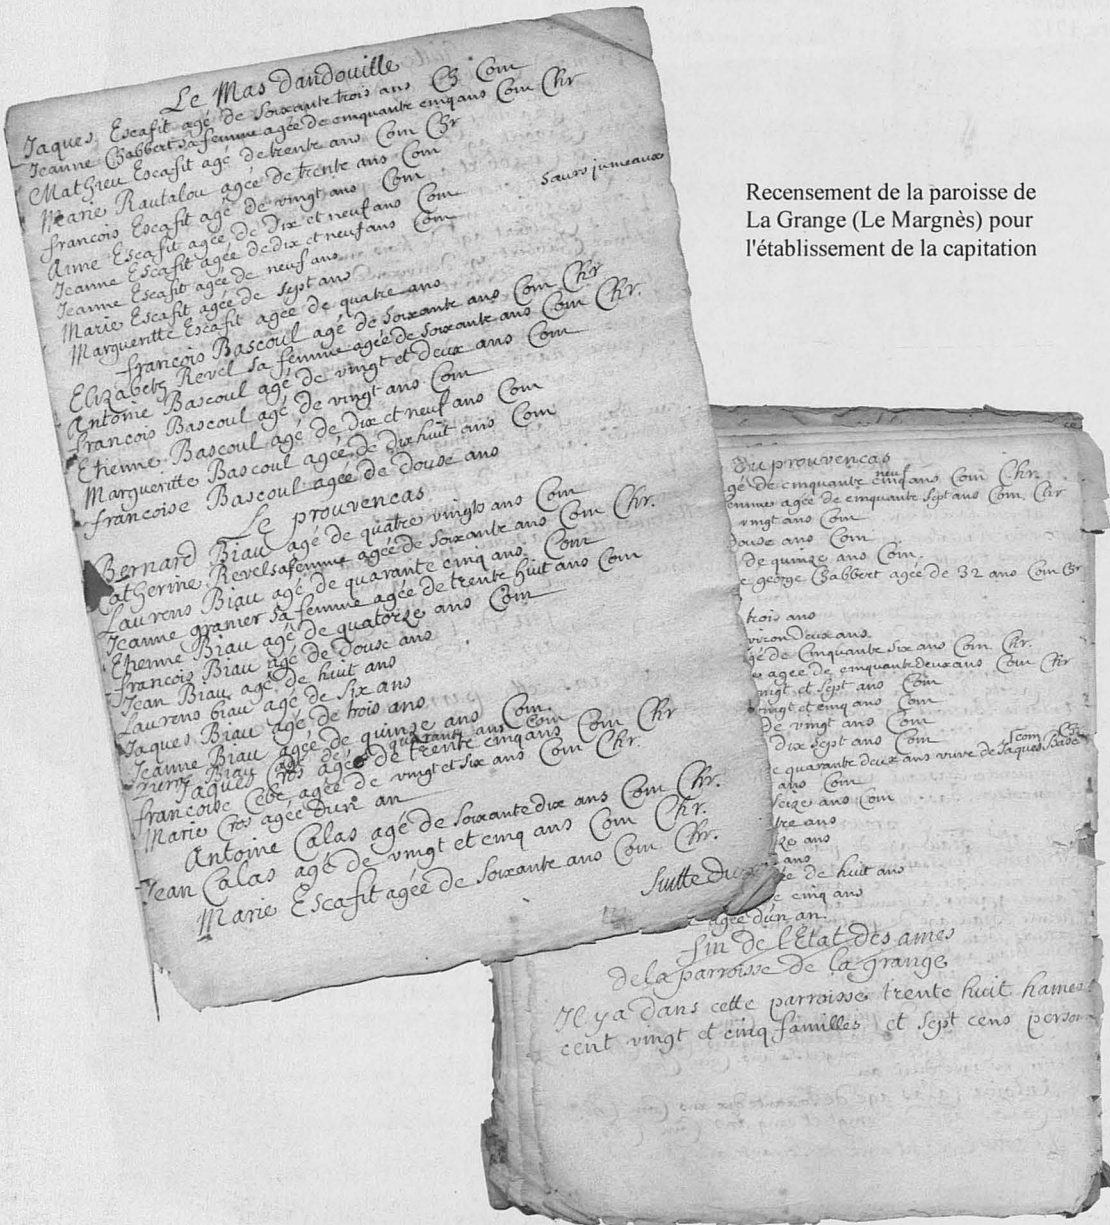 Le Mas dandouille
Jaques Escafit agé de soixante trois ans Com
Jeanne Chabbert sa femme agée de cinquante cinq ans Com Chr
Mathieu Escafit agé de trente ans Com Chr
Marie Rautalou agée de trente ans Com
francois Escafit agé de vingt ans Com
Anne Escafit agée de Dix et neuf ans Com
Jeanne Escafit agée de dix et neuf ans Com
saurs jumeaux
Jeanne Escafit agée de neuf ans
Marie Escafit agée de sept ans
Margueritte Escafit agée de quatre ans
francois Bascoul agé de soixante ans Com Chr
Elizabeth Revel sa femme agée de soixante ans Com Chr.
Antoine Bascoul agé de vingt et deux ans Com
francois Bascoul agé de vingt ans Com
Etienne Bascoul agé de dix et neuf ans Com
Margueritte Bascoul agée de dix huit ans Com
francoise Bascoul agée de douse ans
Le prouvencas
Bernard Biau agé de quatre vingts ans Com
Catherine Revel sa femme agée de soixante ans Com Chr.
Laurens Biau agé de quarante cinq ans Com
Jeanne granier sa femme agée de trente huit ans Com
Etienne Biau agé de quatorze ans Com
francois Biau agé de douse ans
Jean Biau agé de huit ans
Laurens biau agé de six ans
Jaques Biau agé de trois ans
Jeanne Biau agée de quinze ans Com.
Biau agé de quarante ans Com
Jaques Cros agé de trente cinq ans Com Chr
francoise Cebe agée de vingt et six ans Com Chr.
Marie Cros agée dun an
Antoine Calas agé de soixante dix ans Com Chr.
Jean Calas agé de vingt et cinq ans Com Chr.
Marie Escafit agée de soixante ans Com Chr.
Suitte du
Recensement de la paroisse de
La Grange (Le Margnès) pour
l'établissement de la capitation
Du prouvencas
neuf
gé de cinquante cinq ans Com Chr.
emme agée de cinquante sept ans Com Chr
vingt ans Com
douse ans Com
de quinze ans Com.
george Chabbert agée de 32 ans Com Chr
trois ans
viron deux ans
gé de Cinquante six ans Com Chr.
agée de cinquante deux ans Com Chr
vingt et sept ans Com
vingt et cinq ans Com
de vingt ans Com
dix sept ans Com
Com Chr
quarante deux ans vuve de Jaques
ans Com
seize ans Com
tre ans
ans
ans
de huit ans
cinq ans
agée dun an.
fin de l'Etat des ames
de la parroisse de la grange
Il y a dans cette parroisse trente huit hames
cent vingt et cinq familles et sept cens person